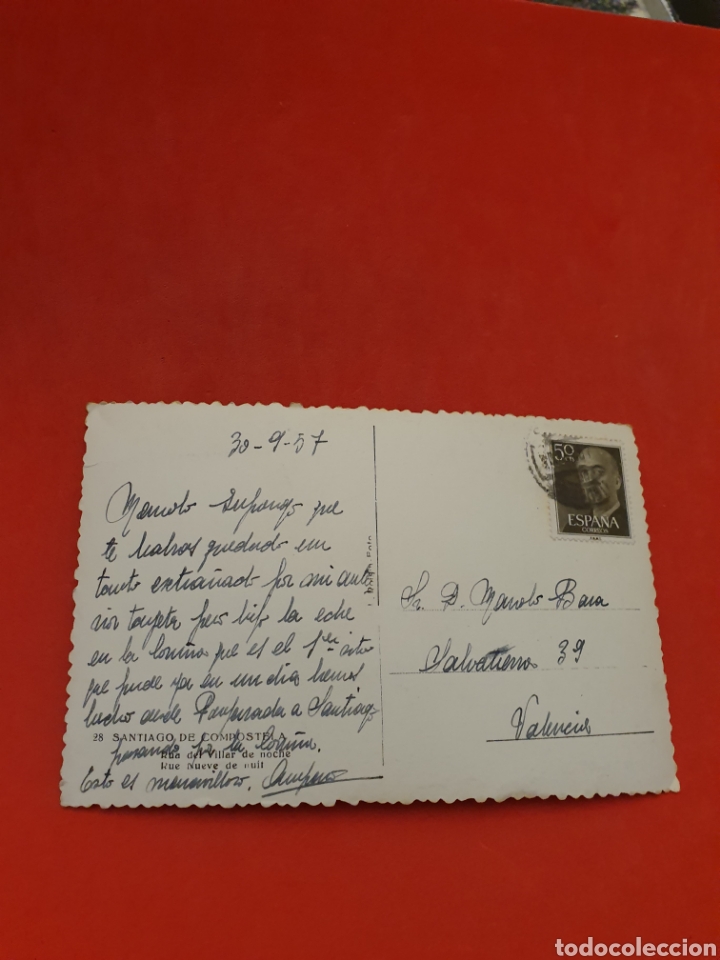 30-9-57
Manolo Supongo que
te habras quedado un
tanto extrañado por mi ante
rior tarjeta pero hijo la eche
en la Coruña que es el 1er sitio
que pude ya en un dia hemos
hecho desde Ponferrada a Santiago
pasando por la Coruña.
Esto es maravilloso. Amparo
28 SANTIAGO DE COMPOSTELA
Rua del Villar de noche
Rue Nueve de nuit
Foto
50
CTS
ESPAÑA
CORREOS
Sr. D. Manolo Bara
Salvatierra 39
Valencia
todocoleccion